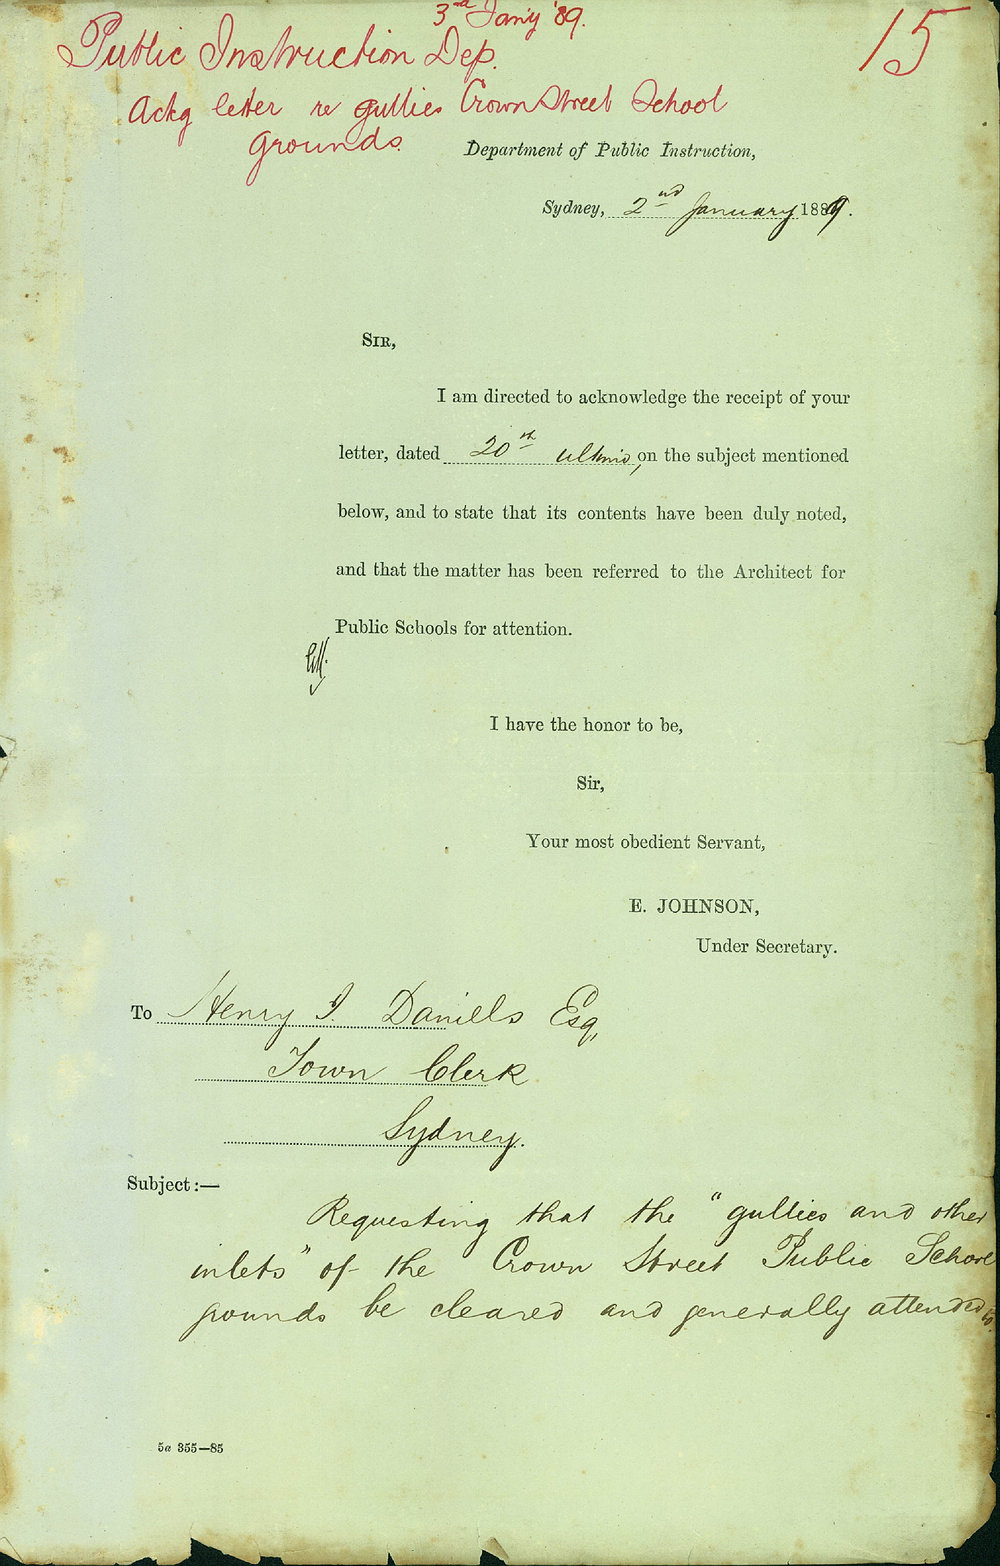 3rd Jan'y '89.
15
Public Instruction Dep.
Ackg letter re gullies Crown Street School
Grounds.
Department of Public Instruction,
Sydney, 2nd January 1889.
SIR,
I am directed to acknowledge the receipt of your
letter, dated 20th ultimo, on the subject mentioned
below, and to state that its contents have been duly noted,
and that the matter has been referred to the Architect for
Public Schools for attention.
I have the honor to be,
Sir,
Your most obedient Servant,
E. JOHNSON,
Under Secretary.
To Henry J. Daniels Esq,
Town Clerk
Sydney.
Subject:—
Requesting that the "gullies and other
inlets" of the Crown Street Public School
grounds be cleared and generally attended to.
5a 355—85